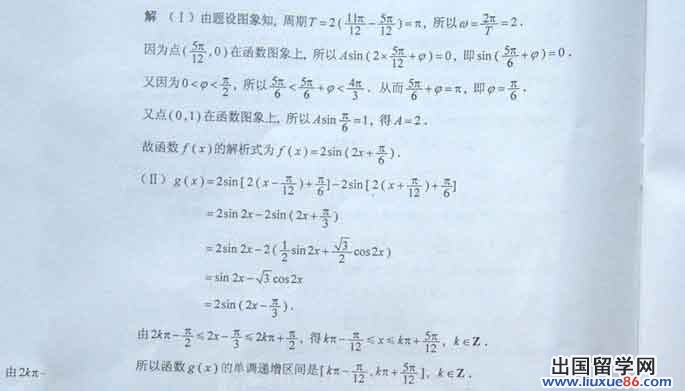 解 (Ⅰ)由题设图象知, 周期T=2(11π/12-5π/12)=π, 所以ω=2π/T=2.
因为点(5π/12,0)在函数图象上, 所以Asin(2×5π/12+φ)=0, 即sin(5π/6+φ)=0.
又因为0<φ<π/2, 所以5π/6<5π/6+φ<4π/3. 从而5π/6+φ=π, 即φ=π/6.
又点(0,1)在函数图象上, 所以Asinπ/6=1, 得A=2.
故函数f(x)的解析式为f(x)=2sin(2x+π/6).
(Ⅱ) g(x)=2sin[2(x-π/12)+π/6]-2sin[2(x+π/12)+π/6]
=2sin 2x-2sin(2x+π/3)
=2sin 2x-2(1/2sin2x+√3/2cos2x)
=sin 2x-√3cos2x
=2sin(2x-π/3).
由2kπ-π/2≤2x-π/3≤2kπ+π/2, 得kπ-π/12≤x≤kπ+5π/12, k∈Z.
所以函数g(x)的单调递增区间是[kπ-π/12,kπ+5π/12], k∈Z.
由2kπ-
出国留学网
www.liuxue86.com